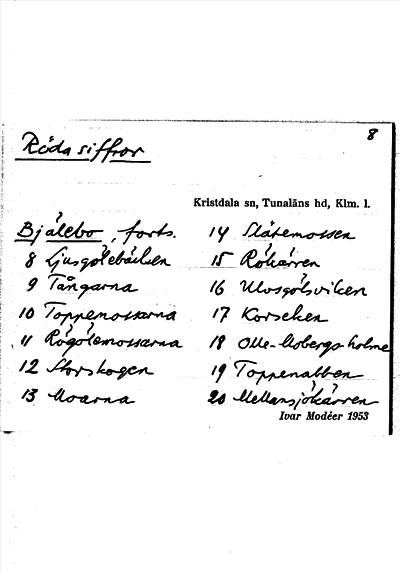 8
Röda siffror
Kristdala sn, Tunaläns hd, Klm. l.
Bjälebo, forts.
8 Ljusgölebäcken
9 Tångarna
10 Toppemossarna
11 Rögölemossarna
12 Storskogen
13 Moarna
14 Slätemossen
15 Rökärren
16 Ulvsgölsviken
17 Korseken
18 Olle-Mobergs holme
19 Toppenabben
20 Mellansjökärren
Ivar Modéer 1953